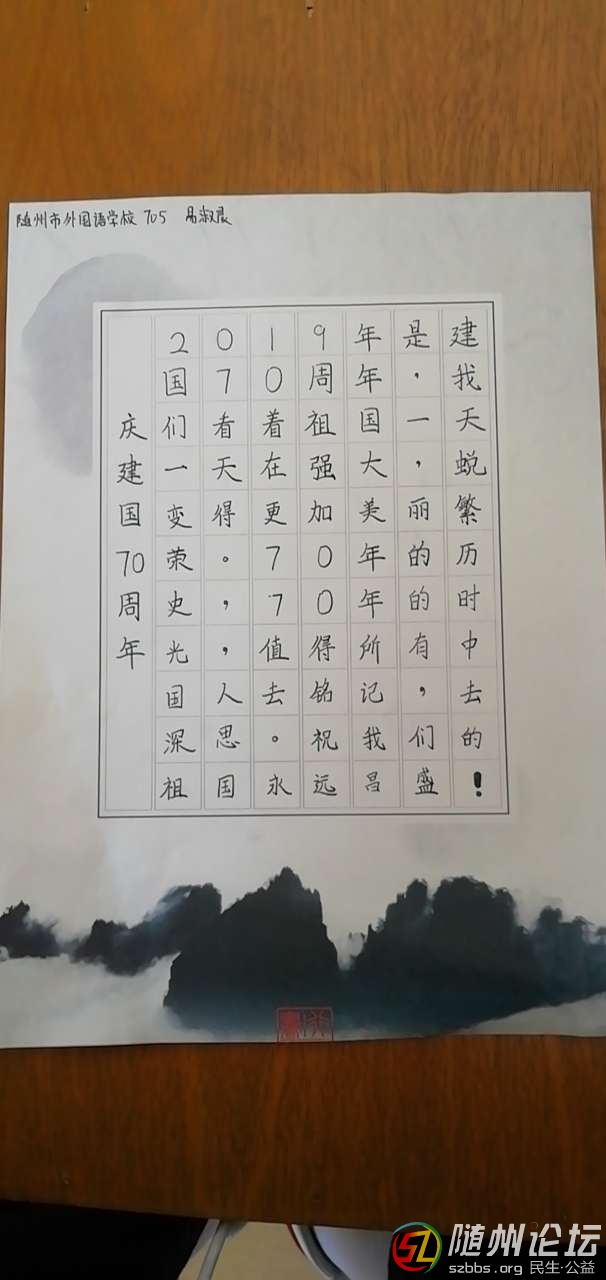 随州市外国语学校 705 易淑晨
庆建国70周年
2019年是建
国70周年，我
们看着祖国一天
一天在强大，蜕
变得更加美丽繁
荣。70年的历
史，70年的时
光，值得所有中
国人去铭记，去
深思。祝我们的
祖国永远昌盛！
随州论坛
szbbs.org 民生·公益